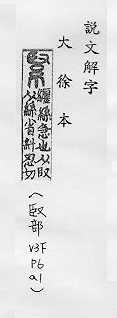 說文解字
大徐本
緊
纏絲急也从臤
从絲省糾忍切
(臤部
V3F
P6
a1)